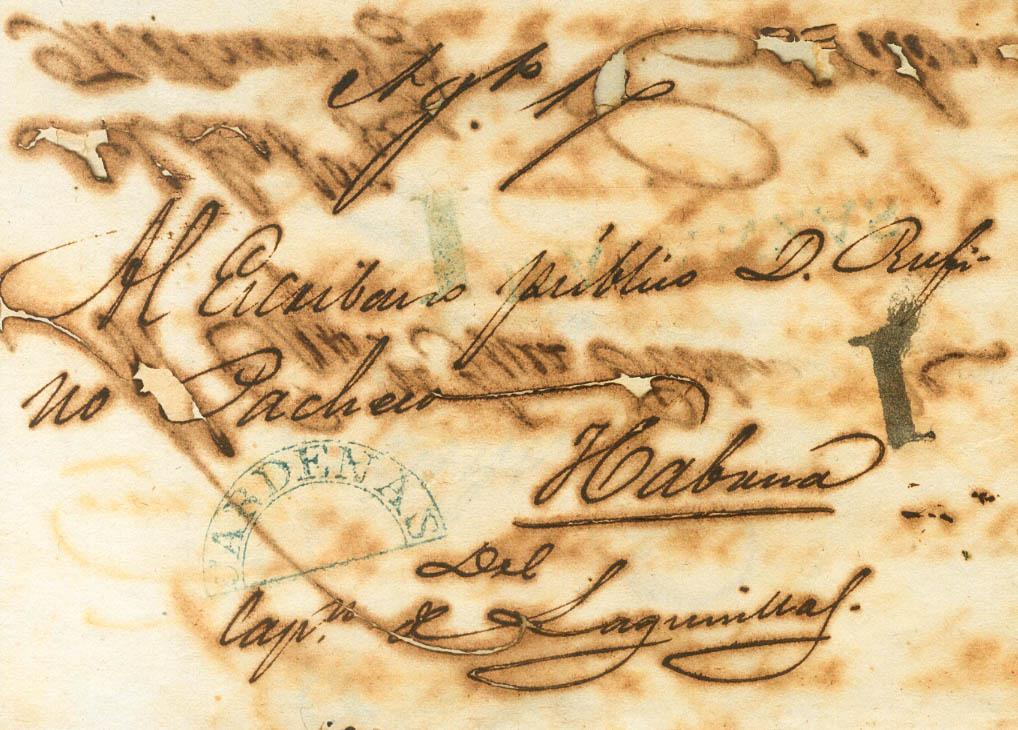 Al Escribano público D. Rufi-
no Pacheco
1
Habana
CARDENAS
Del
Capn. de Lagunillas.